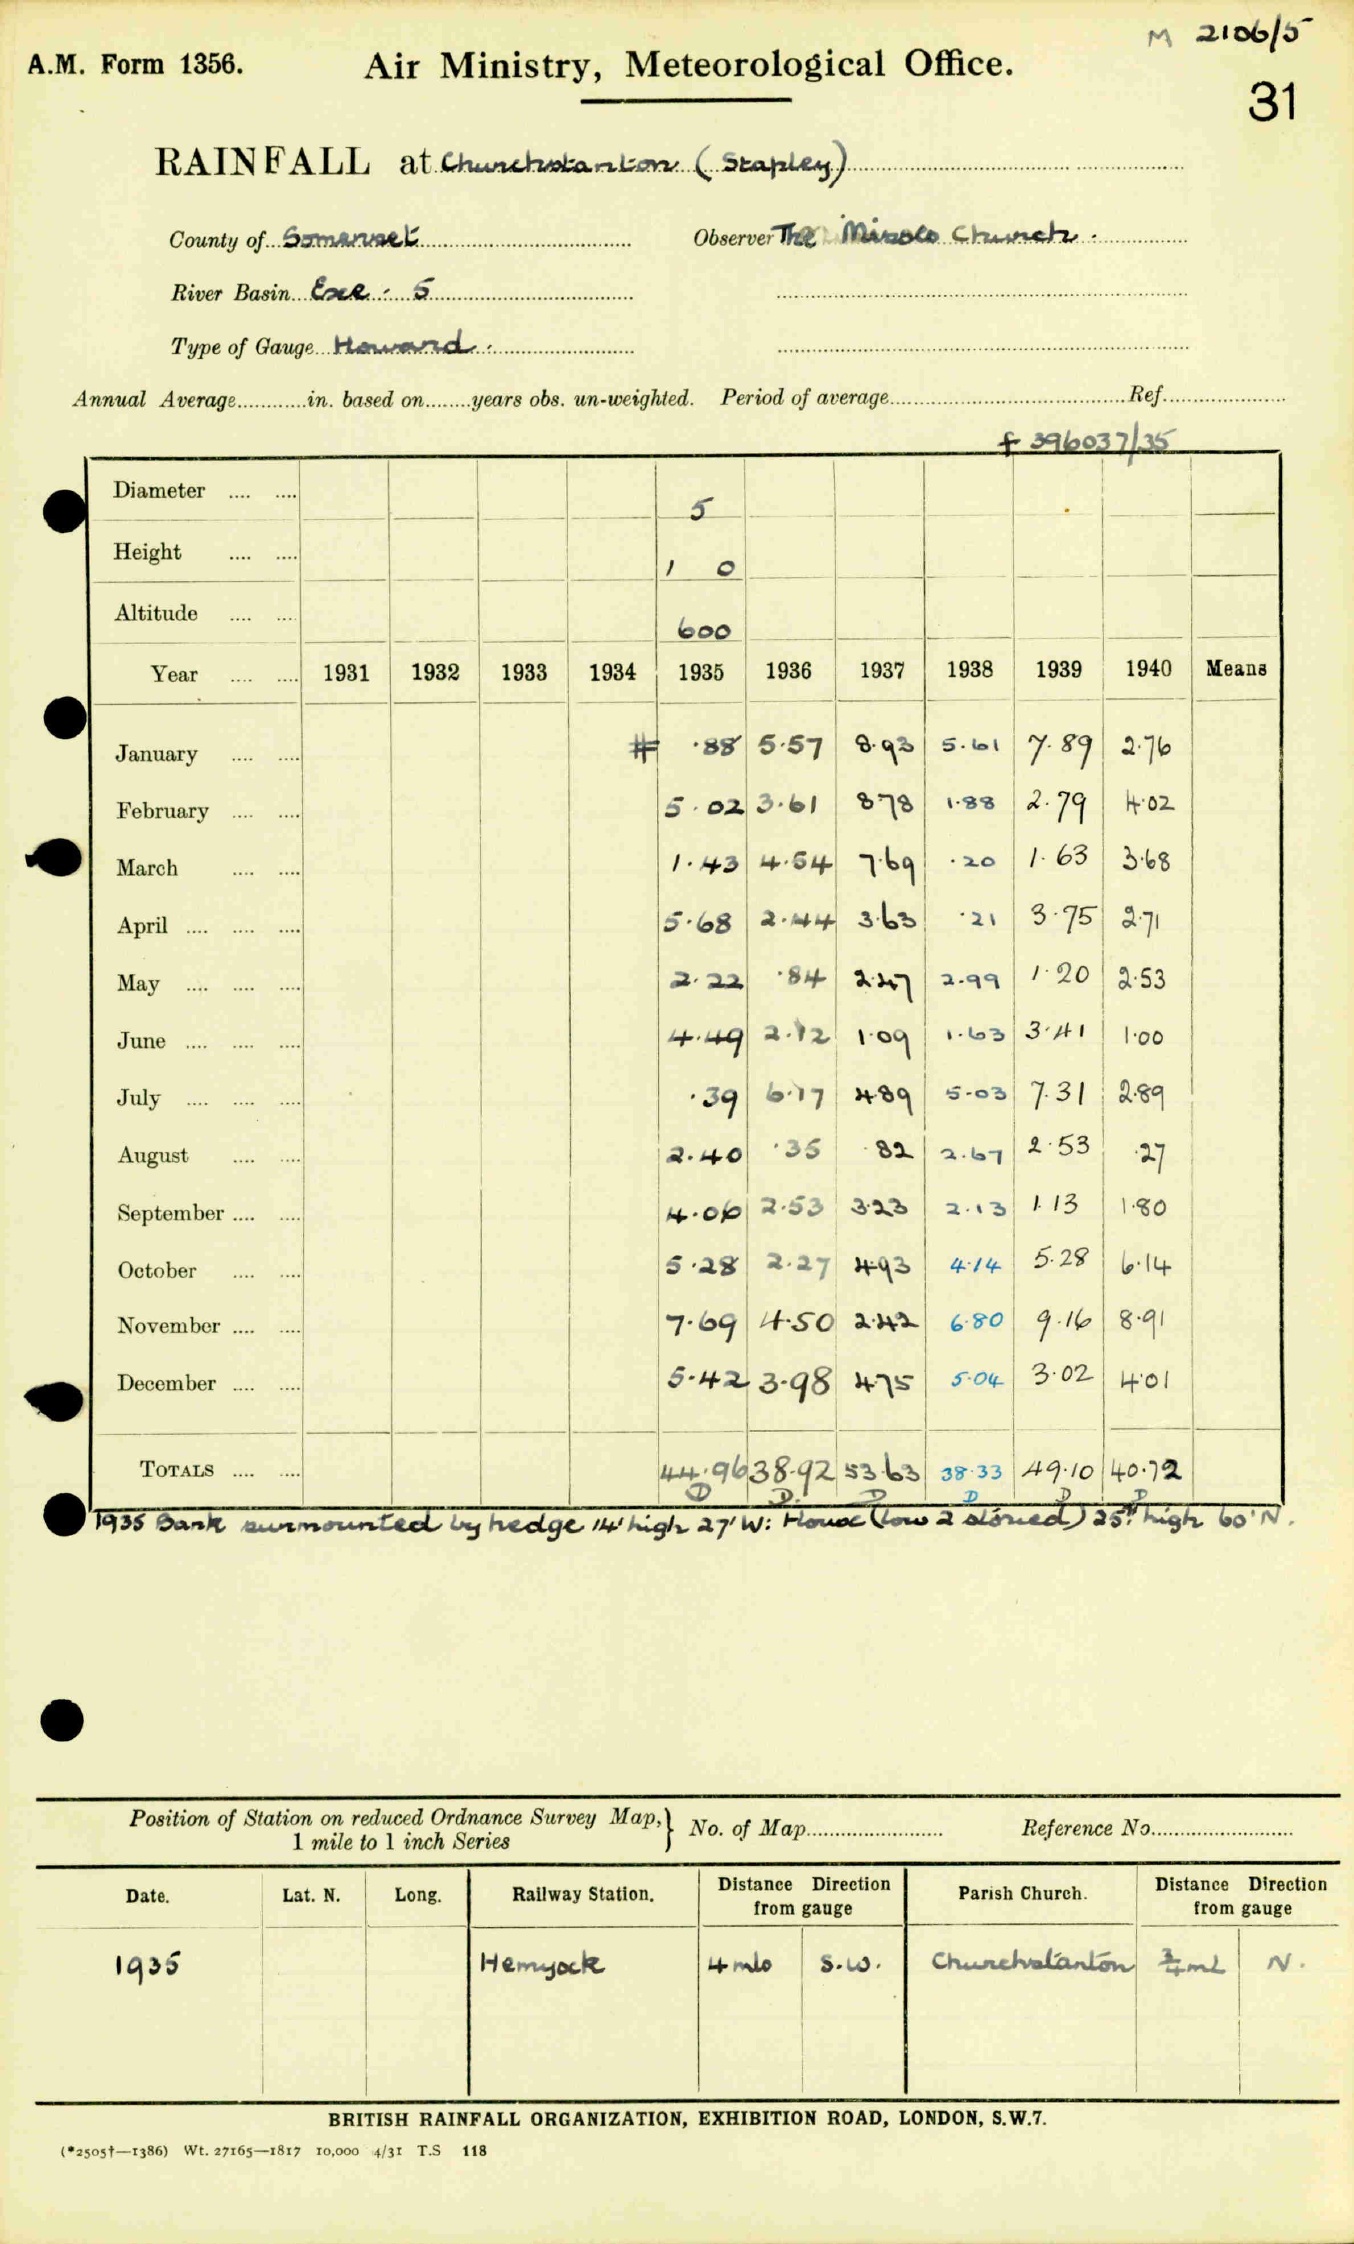 M 2106/5
A.M. Form 1356. Air Ministry, Meteorological Office.
31
RAINFALL at Churchstanton (Stapley)
County of Somerset Observer The Misses Church.
River Basin Exe. 5
Type of Gauge Howard.
Annual Average............in. based on........years obs. un-weighted. Period of average............Ref............
f 396037/35
Diameter .... .... 5
Height .... .... 1 0
Altitude .... .... 600
Year .... .... 1931 1932 1933 1934 1935 1936 1937 1938 1939 1940 Means
January .... .... # .88 5.57 8.93 5.61 7.89 2.76
February .... .... 5.02 3.61 8.78 1.88 2.79 4.02
March .... .... 1.43 4.54 7.69 .20 1.63 3.68
April .... .... .... 5.68 2.44 3.63 .21 3.75 2.71
May .... .... .... 2.22 .84 2.47 2.99 1.20 2.53
June .... .... .... 4.49 2.12 1.09 1.63 3.41 1.00
July .... .... .... .39 6.17 4.89 5.03 7.31 2.89
August .... .... 2.40 .35 .82 2.67 2.53 .27
September .... .... 4.06 2.53 3.23 2.13 1.13 1.80
October .... .... 5.28 2.27 4.93 4.14 5.28 6.14
November .... .... 7.69 4.50 2.42 6.80 9.16 8.91
December .... .... 5.42 3.98 4.75 5.04 3.02 4.01
TOTALS .... .... 44.96 38.92 53.63 38.33 49.10 40.72
D D. D D D D
1935 Bank surmounted by hedge 14' high 27' W: House (low 2 storied) 25ft high 60' N.
Position of Station on reduced Ordnance Survey Map,} No. of Map............ Reference No............
1 mile to 1 inch Series
Date. Lat. N. Long. Railway Station. Distance Direction from gauge Parish Church. Distance Direction from gauge
1935 Hemyock 4 mls S.W. Churchstanton ¾ ml N.
BRITISH RAINFALL ORGANIZATION, EXHIBITION ROAD, LONDON, S.W.7.
(*2505†—1386) Wt. 27165—1817 10,000 4/31 T.S 118